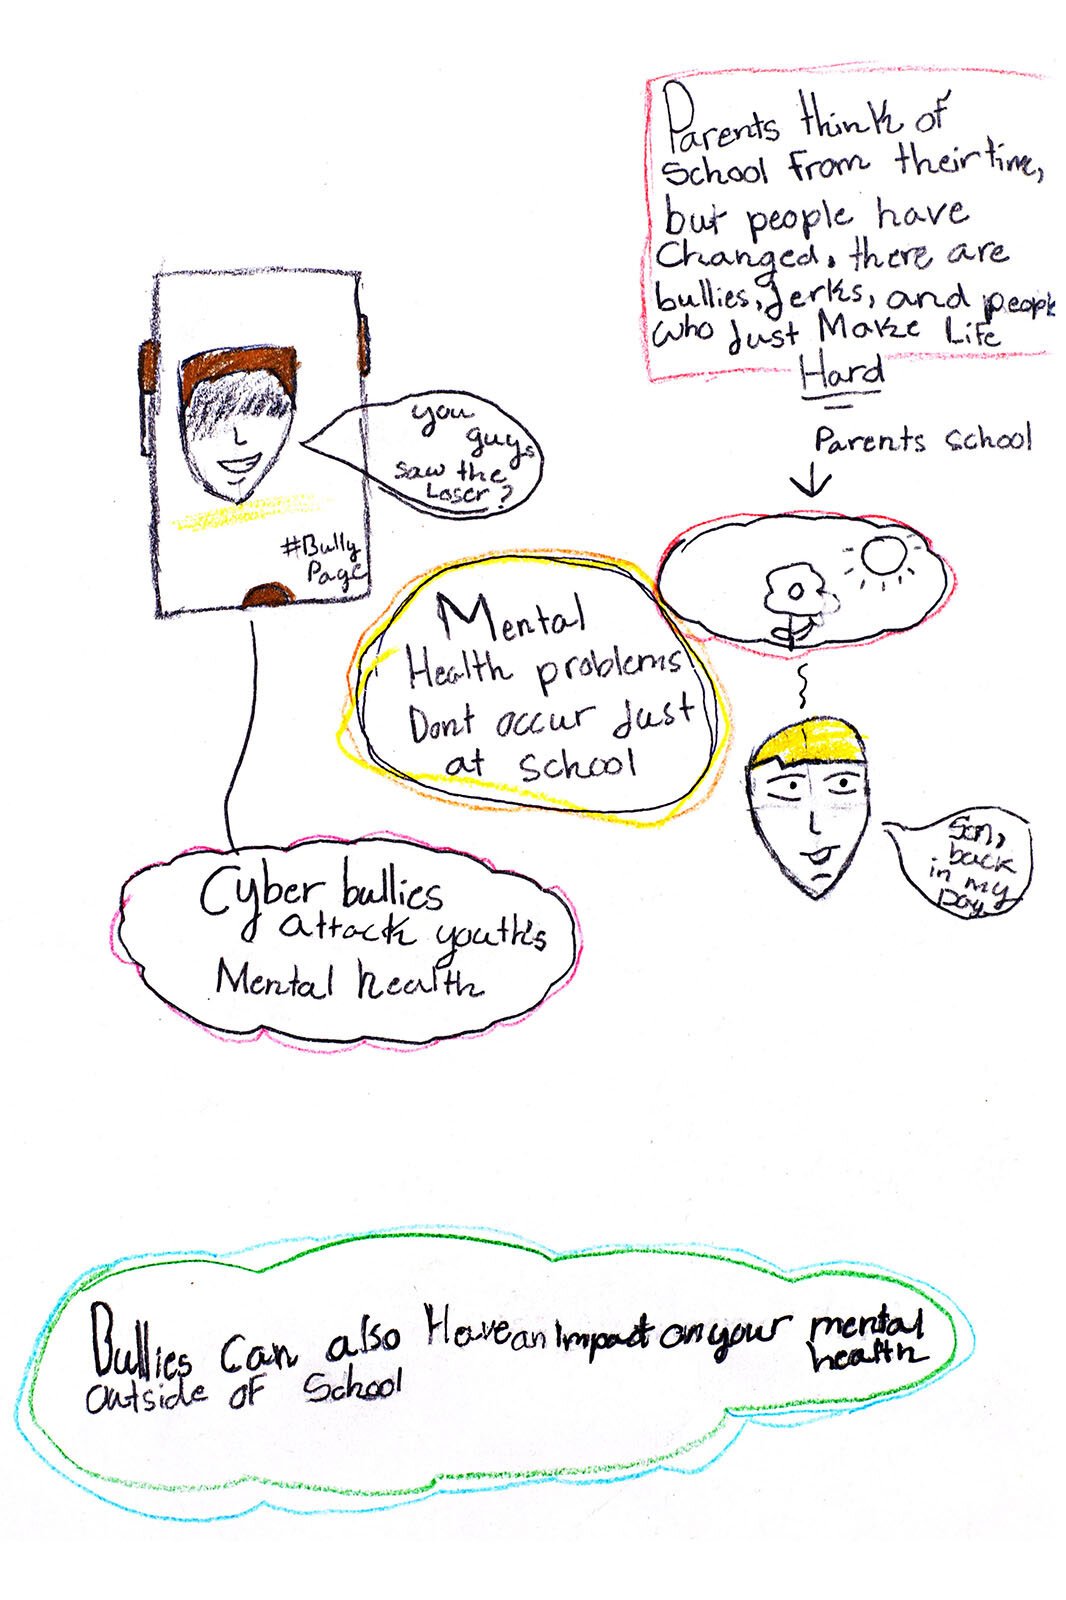 Parents think of
School from their time,
but people have
Changed, there are
bullies, jerks, and people
who Just Make Life
Hard
Parents school
you
guys
saw the
Loser?
#Bully
Page
Mental
Health problems
Dont occur Just
at school
Son,
back
in my
Day
Cyber bullies
attack youth's
Mental health
Bullies Can also Have an Impact on your mental
health
outside of School